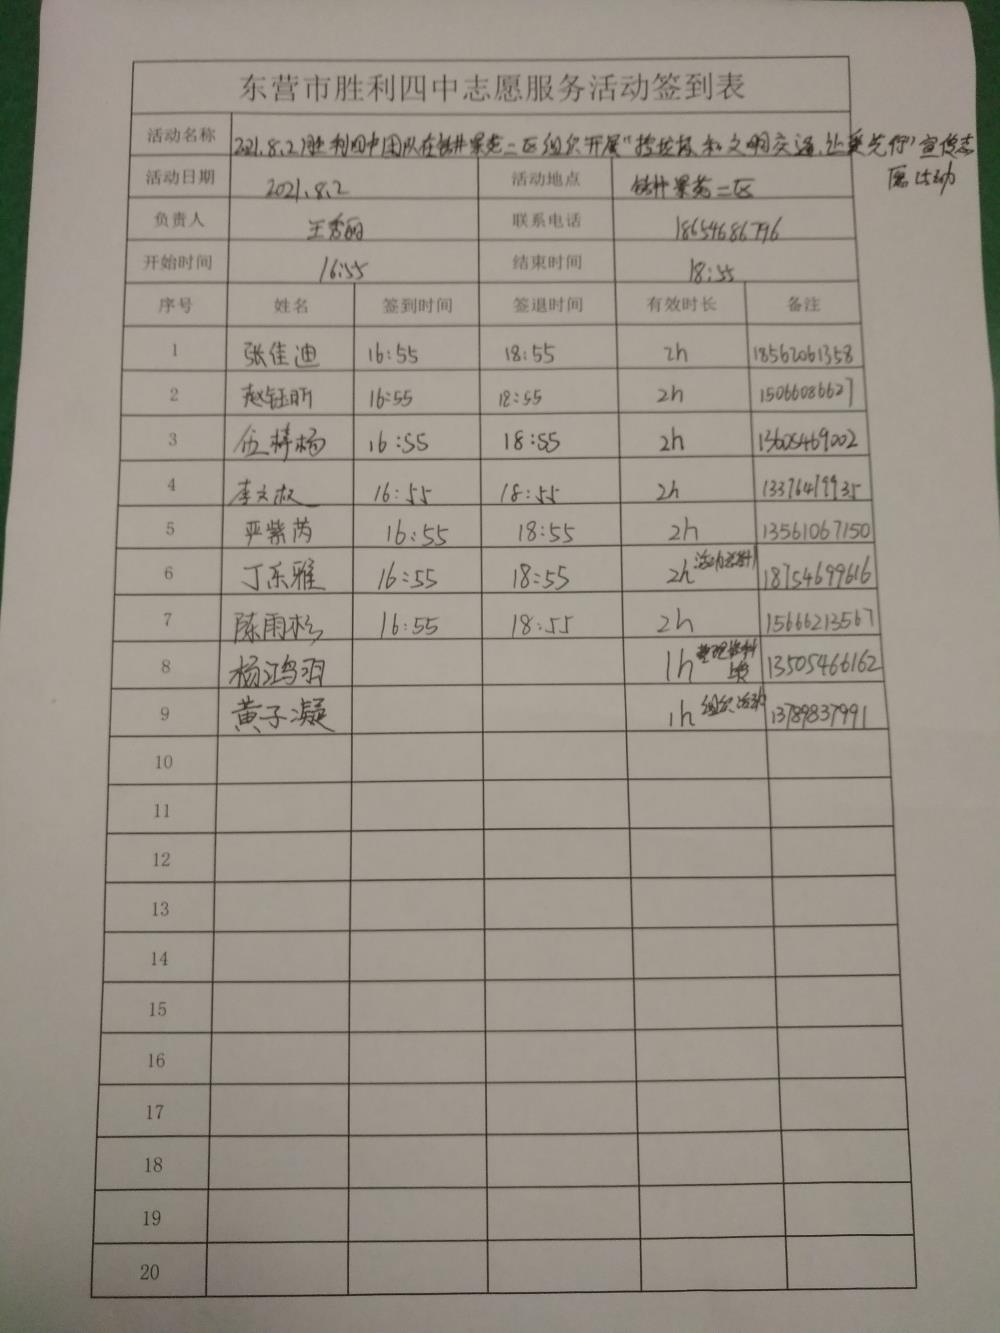 东营市胜利四中志愿服务活动签到表
活动名称 2021.8.2胜利四中团队在钻井景苑二区组织开展"捡垃圾和文明交通,让爱先行"宣传志
愿活动
活动日期 2021.8.2 活动地点 钻井景苑二区
负责人 王秀丽 联系电话 18654686796
开始时间 16:55 结束时间 18:55
序号 姓名 签到时间 签退时间 有效时长 备注
1 张佳迪 16:55 18:55 2h 18562061358
2 赵钰昕 16:55 18:55 2h 15066086627
3 伍梓杨 16:55 18:55 2h 13605469002
4 李文叔 16:55 18:55 2h 13376479935
5 严紫芮 16:55 18:55 2h 13561067150
6 丁乐雅 16:55 18:55 2h 活动 18754699616
7 陈雨杉 16:55 18:55 2h 15666213567
8 杨鸿羽 1h 整理资料 13505466162
9 黄子凝 1h 组织活动 13789837991
10
11
12
13
14
15
16
17
18
19
20